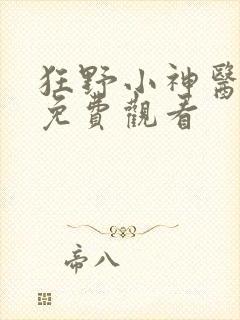 狂野小神醫
免費觀看
帝八